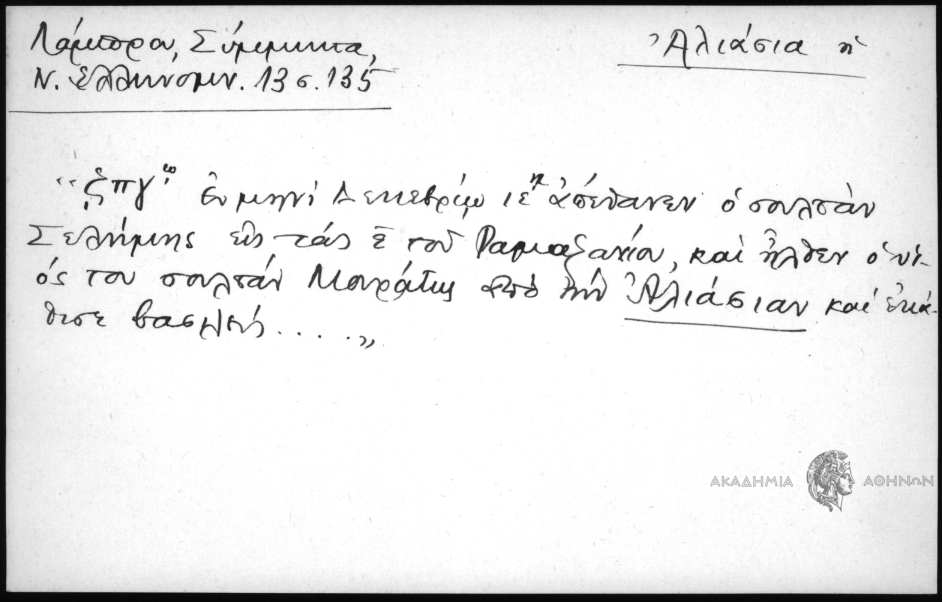 Λάμπρου, Σύμμικτα,
Ν. Ἑλληνομν. 13 σ. 135
Ἀλιάσια ἡ
"ζπγ^ω ἐν μηνὶ Δεκεβρίῳ ιε^ῃ ἀπέθανεν ὁ σουλτὰν
Σελήμης εἰς τὰς ε̄ τοῦ Ραμαζανίου, καὶ ἦλθεν ὁ υἱ-
ός του σουλτὰν Μουράτης ἀπὸ τὴν Ἀλιάσιαν καὶ ἐκά-
θισε βασιλεύς....."
ΑΚΑΔΗΜΙΑ ΑΘΗΝΩΝ